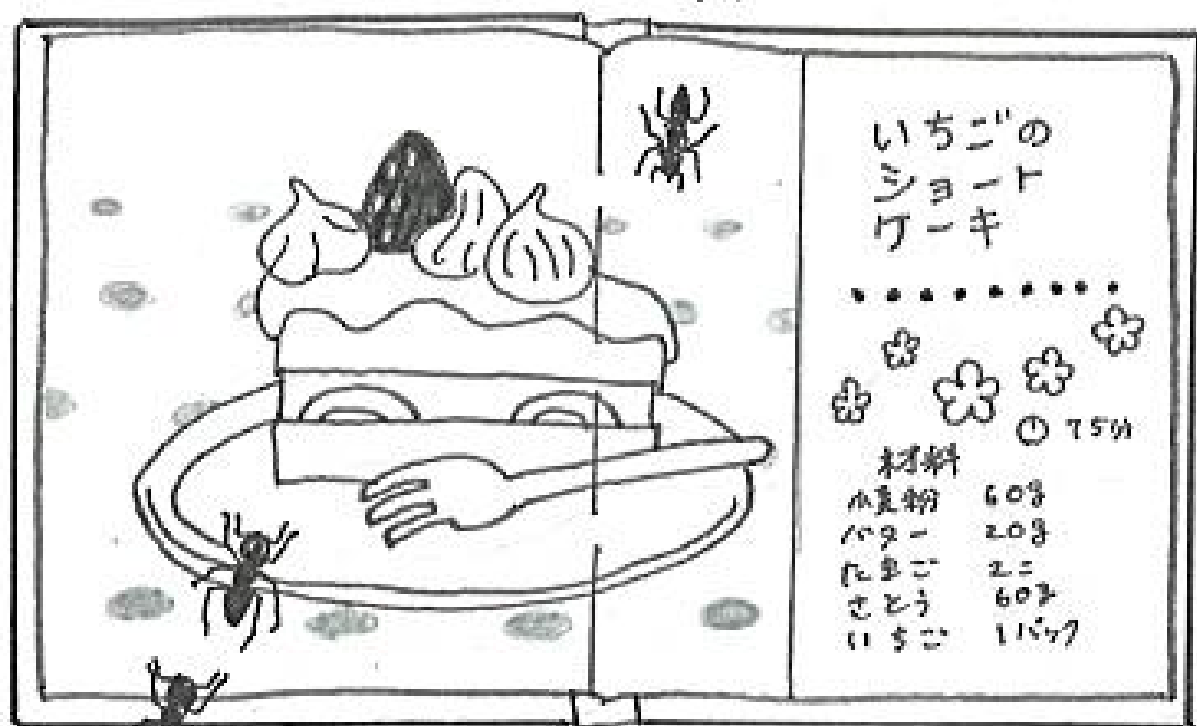 いちごの
ショート
ケーキ
75分
材料
小麦粉 60g
バター 20g
たまご 2こ
さとう 60g
いちご 1パック